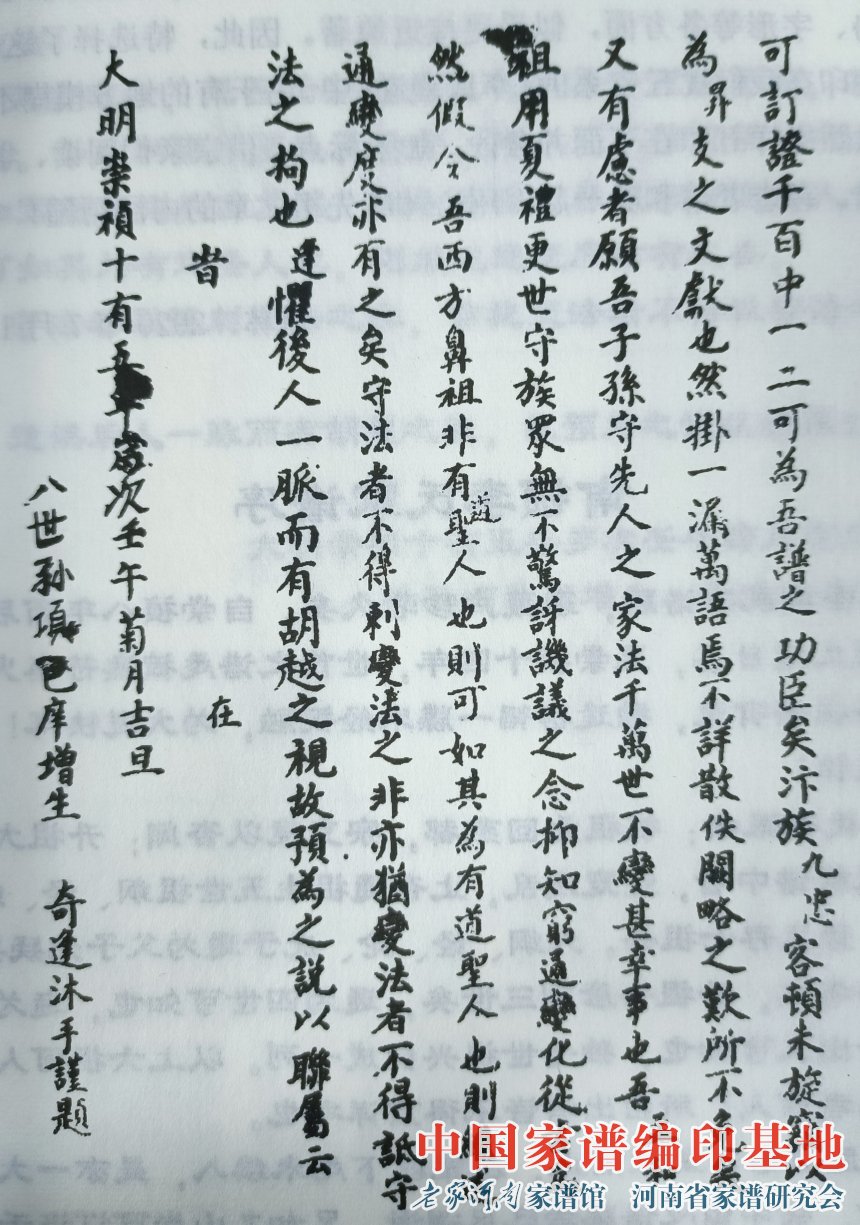 可訂證千百中一二可為吾譜之功臣矣汴族九忠客頓未旋
為昇文之文獻也然掛一漏萬語焉不詳散佚闕略之歎所不免
又有慮者願吾子孫守先人之家法千萬世不變甚幸事也吾
祖用夏禮更世守族眾無不驚訝譏議之念抑知窮通變化從
然假令吾西方鼻祖非有道聖人也則可如其為有道聖人也則
通變度亦有之矣守法者不得刺變法之非亦猶變法者不得詆守
法之拘也逢懼後人一脈而有胡越之視故預為之說以聯屬云
旹
在
大明崇禎十有五年歲次壬午菊月吉旦
八世孫項邑庠增生 奇逢沐手謹題
中国家谱编印基地
老家河南家谱馆 河南省家谱研究会